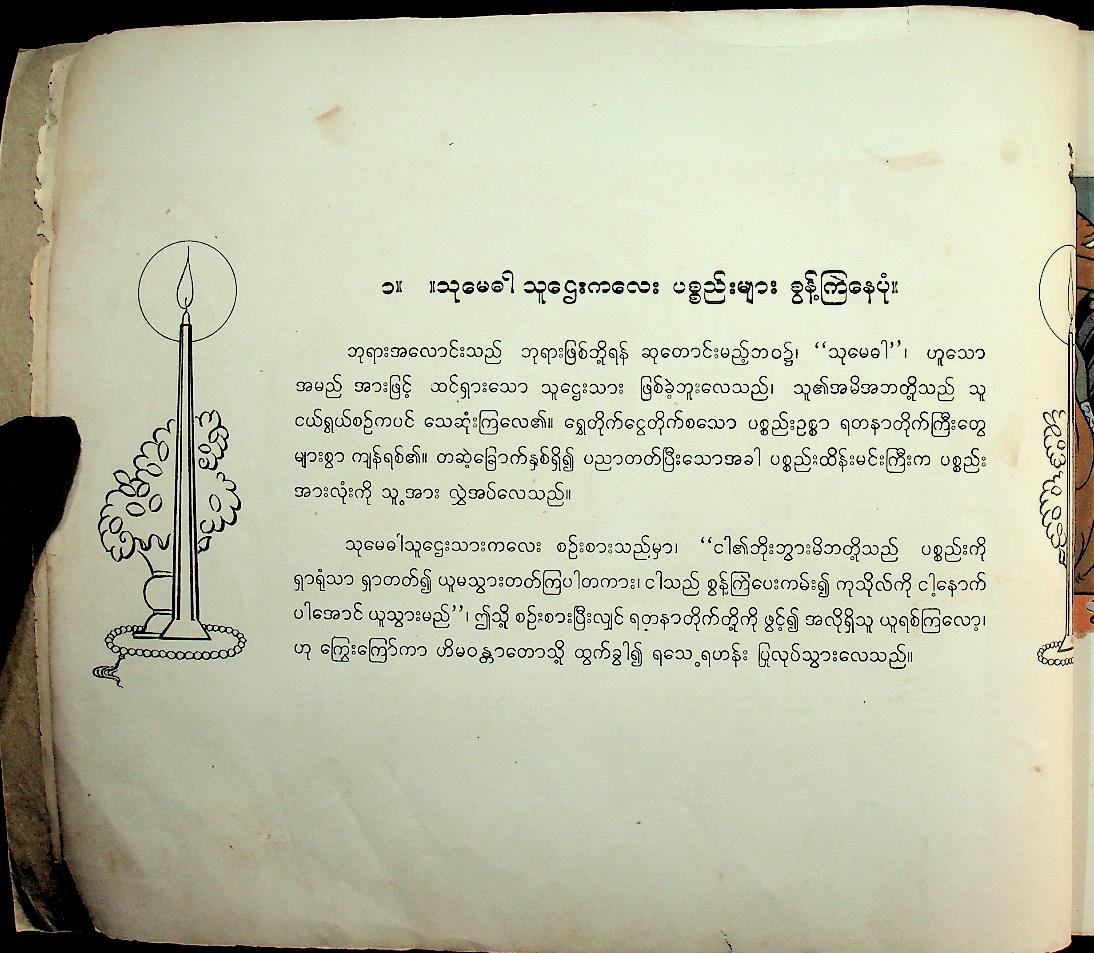 ၁။ ။သုမေဓါ သူဌေးကလေး ပစ္စည်းများ စွန့်ကြဲနေပုံ။
ဘုရားအလောင်းသည် ဘုရားဖြစ်ဘို့ရန် ဆုတောင်းမည့်ဘဝ၌၊ “သုမေဓါ”၊ ဟူသော
အမည် အားဖြင့် ထင်ရှားသော သူဌေးသား ဖြစ်ခဲ့ဘူးလေသည်၊ သူ၏အမိအဘတို့သည် သူ
ငယ်ရွယ်စဉ်ကပင် သေဆုံးကြလေ၏။ ရွှေတိုက်ငွေတိုက်စသော ပစ္စည်းဥစ္စာ ရတနာတိုက်ကြီးတွေ
များစွာ ကျန်ရစ်၏။ တဆဲ့ခြောက်နှစ်ရှိ၍ ပညာတတ်ပြီးသောအခါ ပစ္စည်းထိန်းမင်းကြီးက ပစ္စည်း
အားလုံးကို သူ့အား လွှဲအပ်လေသည်။
သုမေဓါသူဌေးသားကလေး စဉ်းစားသည်မှာ၊ “ငါ၏ဘိုးဘွားမိဘတို့သည် ပစ္စည်းကို
ရှာရုံသာ ရှာတတ်၍ ယူမသွားတတ်ကြပါတကား၊ ငါသည် စွန့်ကြဲပေးကမ်း၍ ကုသိုလ်ကို ငါ့နောက်
ပါအောင် ယူသွားမည်”၊ ဤသို့ စဉ်းစားပြီးလျှင် ရတနာတိုက်တို့ကို ဖွင့်၍ အလိုရှိသူ ယူရစ်ကြလော့၊
ဟု ကြွေးကြော်ကာ ဟိမဝန္တာတောသို့ ထွက်ခွါ၍ ရသေ့ရဟန်း ပြုလုပ်သွားလေသည်။